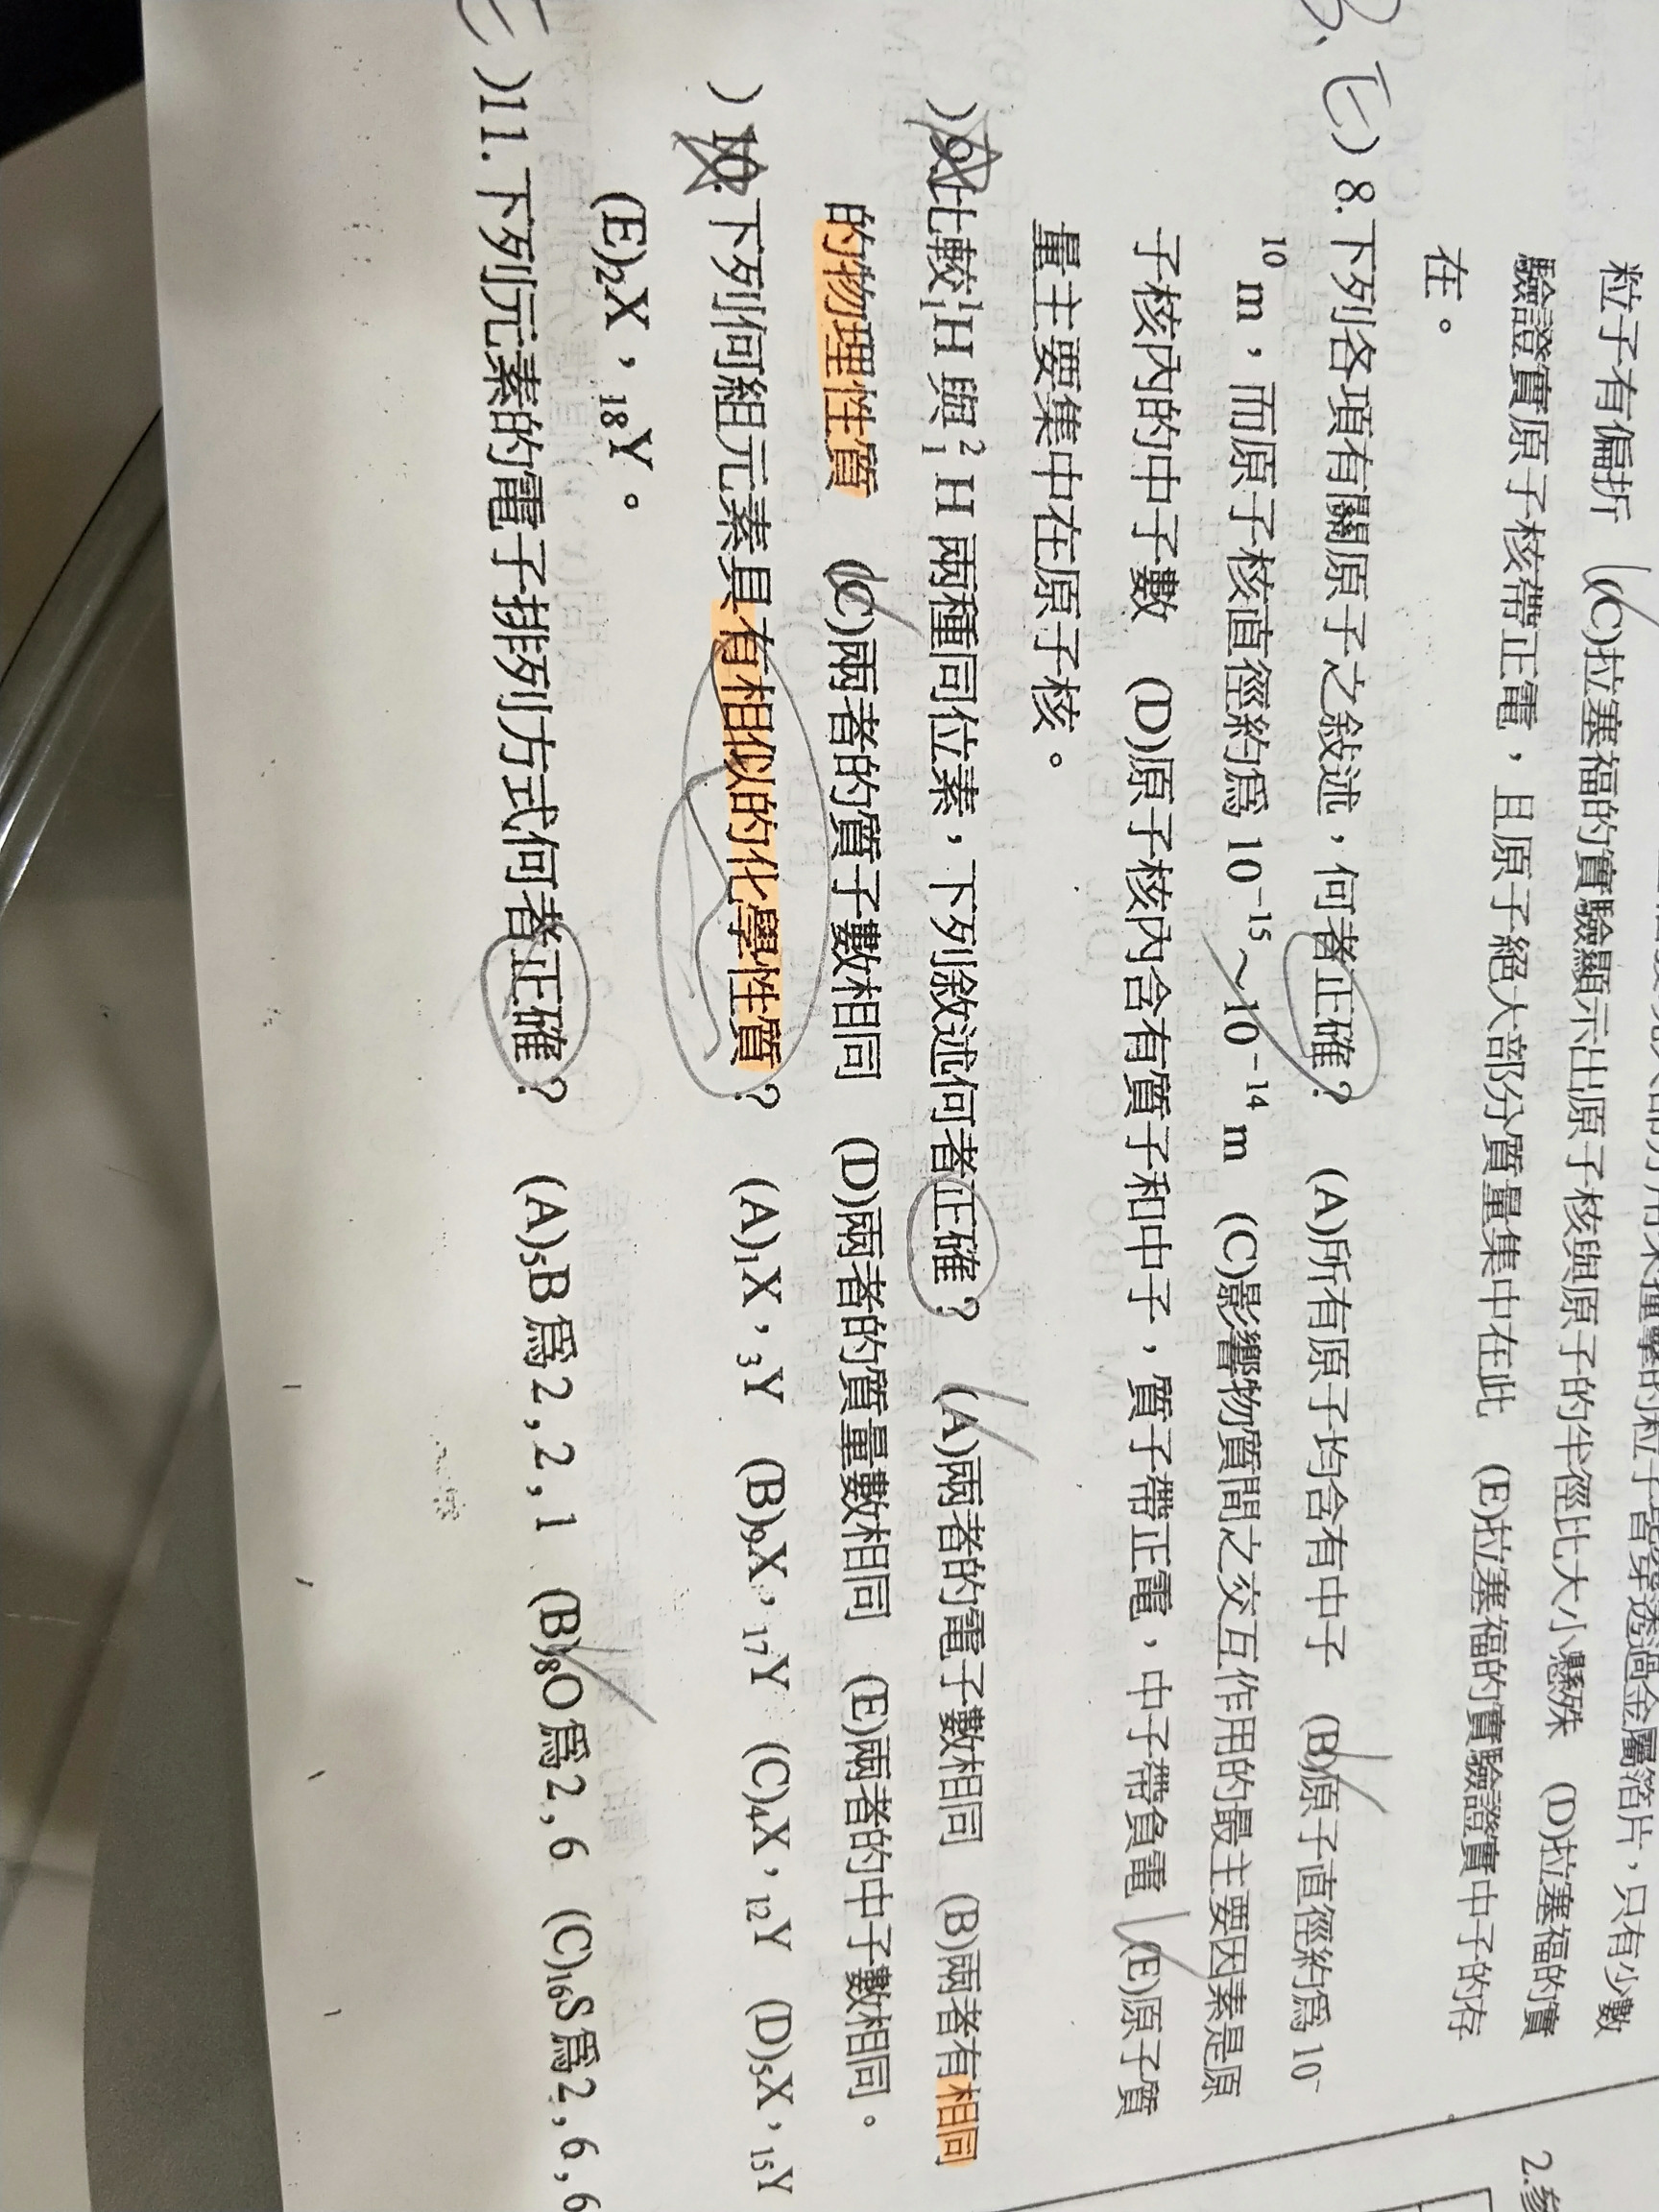 粒子有偏折 (C)拉塞福的實驗顯示出原子核與原子的半徑比大小懸殊 (D)拉塞福的實
驗證實原子核帶正電，且原子絕大部分質量集中在此 (E)拉塞福的實驗證實中子的存
在。
B、E)8.下列各項有關原子之敘述，何者正確？ (A)所有原子均含有中子 (B)原子直徑約為 10⁻
¹⁰ m，而原子核直徑約為 10⁻¹⁵～10⁻¹⁴ m (C)影響物質間之交互作用的最主要因素是原
子核內的中子數 (D)原子核內含有質子和中子，質子帶正電，中子帶負電 (E)原子質
量主要集中在原子核。
)9.比較¹₁H 與 ²₁H 兩種同位素，下列敘述何者正確？ (A)兩者的電子數相同 (B)兩者有相同
的物理性質 (C)兩者的質子數相同 (D)兩者的質量數相同 (E)兩者的中子數相同。
)10.下列何組元素具有相似的化學性質？ (A)₁X，₃Y (B)₉X，₁₇Y (C)₄X，₁₂Y (D)₅X，₁₅Y
(E)₂X，₁₈Y。
)11.下列元素的電子排列方式何者正確？ (A)₅B為2,2,1 (B)₈O為2,6 (C)₁₆S為2,6,6
2.參